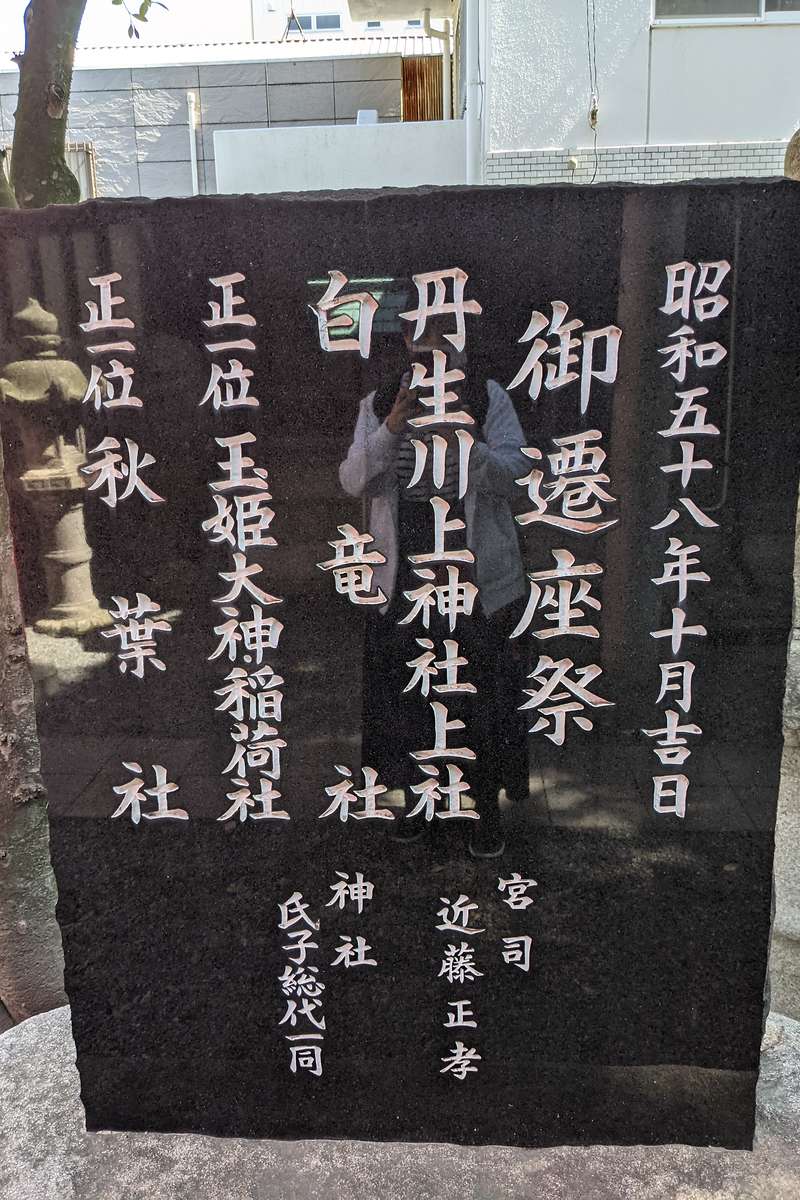 昭和五十八年十月吉日
御遷座祭
丹生川上神社上社
白竜社
正一位 玉姫大神稲荷社
正一位 秋葉社
宮司
近藤正孝
神社
氏子総代一同